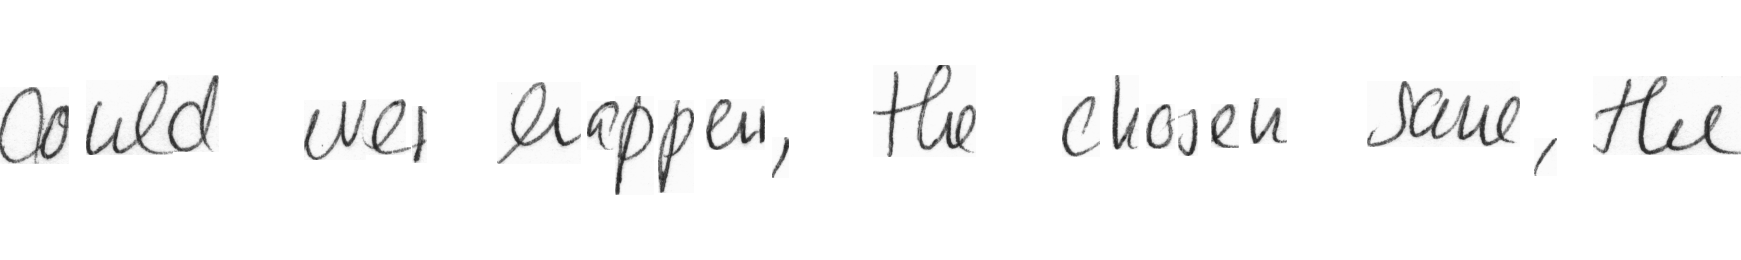 Could ever happen, the chosen same, the